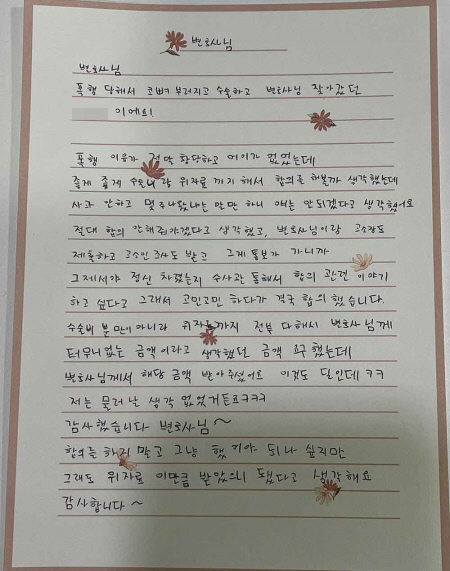 변호사님
변호사님
폭행 당해서 코뼈 부러지고 수술하고 변호사님 찾아갔던
이에요!
폭행 이유가 정말 황당하고 어이가 없었는데
좋게 좋게 수술비랑 위자료까지 해서 합의를 해볼까 생각했는데
사과 안하고 몇 주 나왔냐는 말만 하니 얘는 안되겠다고 생각했어요
절대 합의 안해줘야겠다고 생각했고, 변호사님이랑 고소장도
제출하고 고소인 조사도 받고 그게 통보가 가니까
그제서야 정신 차렸는지 수사관 통해서 합의 관련 이야기
하고 싶다고 그래서 고민고민 하다가 결국 합의 했습니다.
수술비 뿐만이 아니라 위자료까지 전부 다해서 변호사님께
터무니없는 금액이라고 생각했던 금액 요구 했는데
변호사님께서 해당 금액 받아주셨어요 이것도 딜인데 ㅋㅋ
저는 물러날 생각 없었거든요ㅋㅋㅋ
감사했습니다 변호사님~
합의를 하지 말고 그냥 했어야 되나 싶지만
그래도 위자료 이만큼 받았으니 됐다고 생각해요
감사합니다~